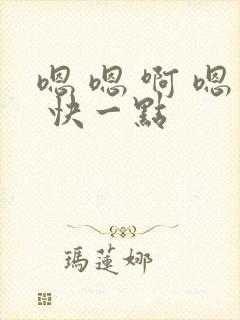 嗯嗯啊嗯
快一點
瑪蓮娜